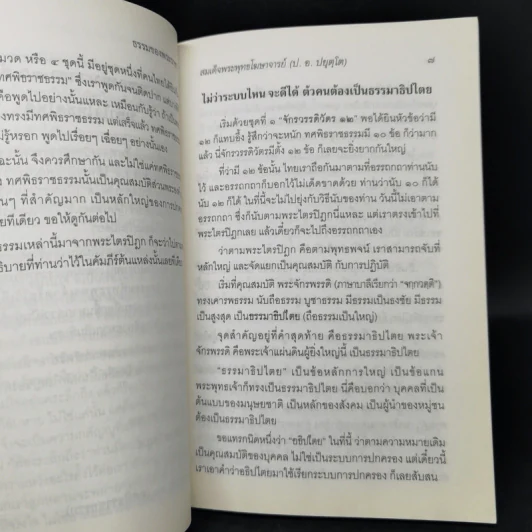 ธรรมของพระราชา
มวด หรือ ๔ ชุดนี้ มีอยู่ชุดหนึ่งที่คนไทยได้ยิน
ทศพิธราชธรรม" ซึ่งเราพูดกันจนติดปาก แต่
คือพูดไปอย่างนั้นแหละ เหมือนกับรู้ว่า ถ้าเป็น
ทรงมีทศพิธราชธรรม แต่เสร็จแล้ว ทศพิธราช
รู้หรอก พูดไปเรื่อยๆ เฉื่อยๆ อย่างนั้นเอง
ะนั้น จึงควรศึกษากัน และไม่ใช่แค่ทศพิธราช
ทศพิธราชธรรมนั้นเป็นคุณสมบัติส่วน
นๆ ที่สำคัญมาก เป็นหลักใหญ่ของการปก
ยทีเดียว ขอให้ดูกันต่อไป
ธรรมเหล่านี้มาจากพระไตรปิฎก ก็จะว่าไปตาม
ธิบายที่ท่านว่าไว้ในคัมภีร์ต้นแหล่งนั้นเลยทีเดียว
สมเด็จพระพุทธโฆษาจารย์ (ป. อ. ปยุตฺโต) ๗
ไม่ว่าระบบไหน จะดีได้ ตัวคนต้องเป็นธรรมาธิปไตย
เริ่มด้วยชุดที่ ๑ "จักรวรรดิวัตร ๑๒" พอได้ยินหัวข้อว่ามี
๑๒ ก็แทบอึ้ง รู้สึกว่าจะหนัก ทศพิธราชธรรมมี ๑๐ ข้อ ก็ว่ามาก
แล้ว นี่จักรวรรดิวัตรมีตั้ง ๑๒ ข้อ ก็เลยจะยิ่งยากกันใหญ่
ที่ว่ามี ๑๒ ข้อนั้น ไทยเราถือกันมาตามที่อรรถกถาท่านนับ
ไว้ และอรรถกถาก็บอกไว้ไม่เด็ดขาดด้วย ท่านว่านับ ๑๐ ก็ได้
นับ ๑๒ ก็ได้ ในที่นี้จะไม่ไปยุ่งกับวิธีนับของท่าน วันนี้ไม่เอาตาม
อรรถกถา ซึ่งก็นับตามพระไตรปิฎกนี่แหละ แต่เราตรงเข้าไปที่
พระไตรปิฎกเลย แล้วเดี๋ยวก็จะไปถึงอรรถกถาเอง
ว่าตามพระไตรปิฎก คือตามพุทธพจน์ เราสามารถจับที่
หลักใหญ่ และจัดแยกเป็นคุณสมบัติ กับการปฏิบัติ
เริ่มที่คุณสมบัติ พระจักรพรรดิ (ภาษาบาลีเรียกว่า "จกฺกวตฺติ")
ทรงเคารพธรรม นับถือธรรม บูชาธรรม มีธรรมเป็นธงชัย มีธรรม
เป็นสูงสุด เป็นธรรมาธิปไตย (ถือธรรมเป็นใหญ่)
จุดสำคัญอยู่ที่คำสุดท้าย คือธรรมาธิปไตย พระเจ้า
จักรพรรดิ คือพระเจ้าแผ่นดินผู้ยิ่งใหญ่นี้ เป็นธรรมาธิปไตย
"ธรรมาธิปไตย" เป็นข้อหลักการใหญ่ เป็นข้อแกน
พระพุทธเจ้าก็ทรงเป็นธรรมาธิปไตย นี่คือบอกว่า บุคคลที่เป็น
ต้นแบบของมนุษยชาติ เป็นหลักของสังคม เป็นผู้นำของหมู่ชน
ต้องเป็นธรรมาธิปไตย
ขอแทรกนิดหนึ่งว่า "อธิปไตย" ในที่นี้ ว่าตามความหมายเดิม
เป็นคุณสมบัติของบุคคล ไม่ใช่เป็นระบบการปกครอง แต่เดี๋ยวนี้
เราเอาคำว่าอธิปไตยมาใช้เรียกระบบการปกครอง ก็เลยสับสน